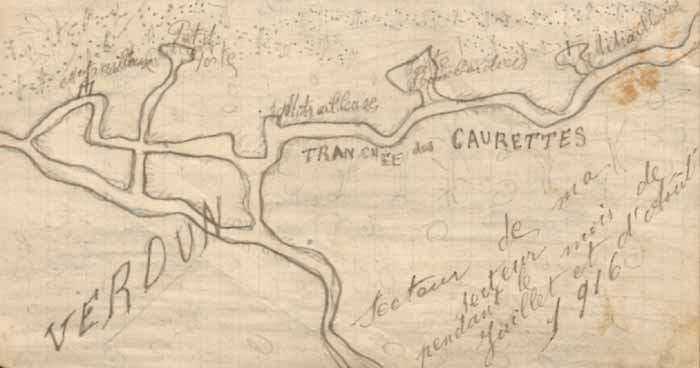 Petit
Poste
Mitrailleuse
Mitrailleuse
Poste
Bombardier
Mitrailleuse
TRANCHÉE des CAURETTES
VERDUN
Secteur de ma
secteur mois de
pendant le
Juillet et d'Août
1916